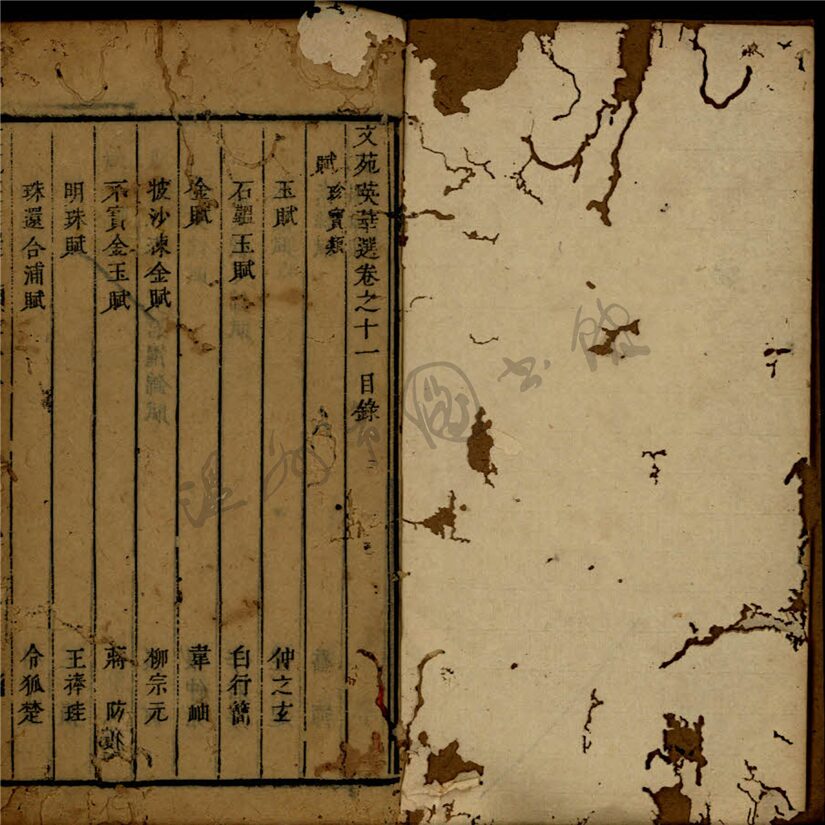 文苑英華選卷之十一目錄
賦 珍寶類
玉賦 仲之玄
石韞玉賦 白行簡
金賦 韋岫
披沙涑金賦 柳宗元
不寶金玉賦 蔣防
明珠賦 王捧珪
珠還合浦賦 令狐楚
溫州市圖书馆